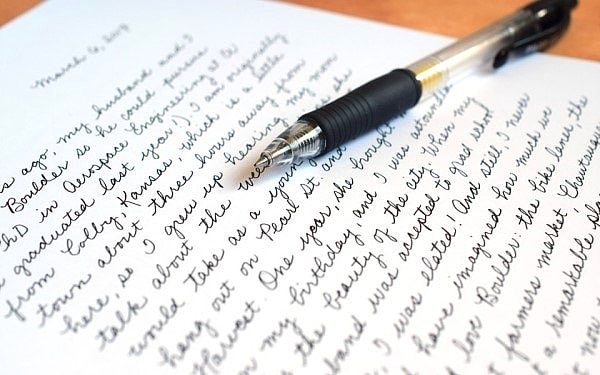 March 6, 2013
s ago. my husband and I
Boulder so he could pursue
PhD in Aerospace Engineering at C
graduated last year!) I am originally
from Colby, Kansas, which is a little
town about three hours away from
here, so I grew up hearing my mom
talk about the wee
would take as a young
hang out on Pearl St. and
Harvest. One year, she brought m
n my birthday, and I was astounde
the beauty of the city. When my
band was accepted to grad school
, I was elated! And still, I never
have imagined how much we
love Boulder: the bike lanes, the
t farmers market, Chautauqua
t a remarkable pla